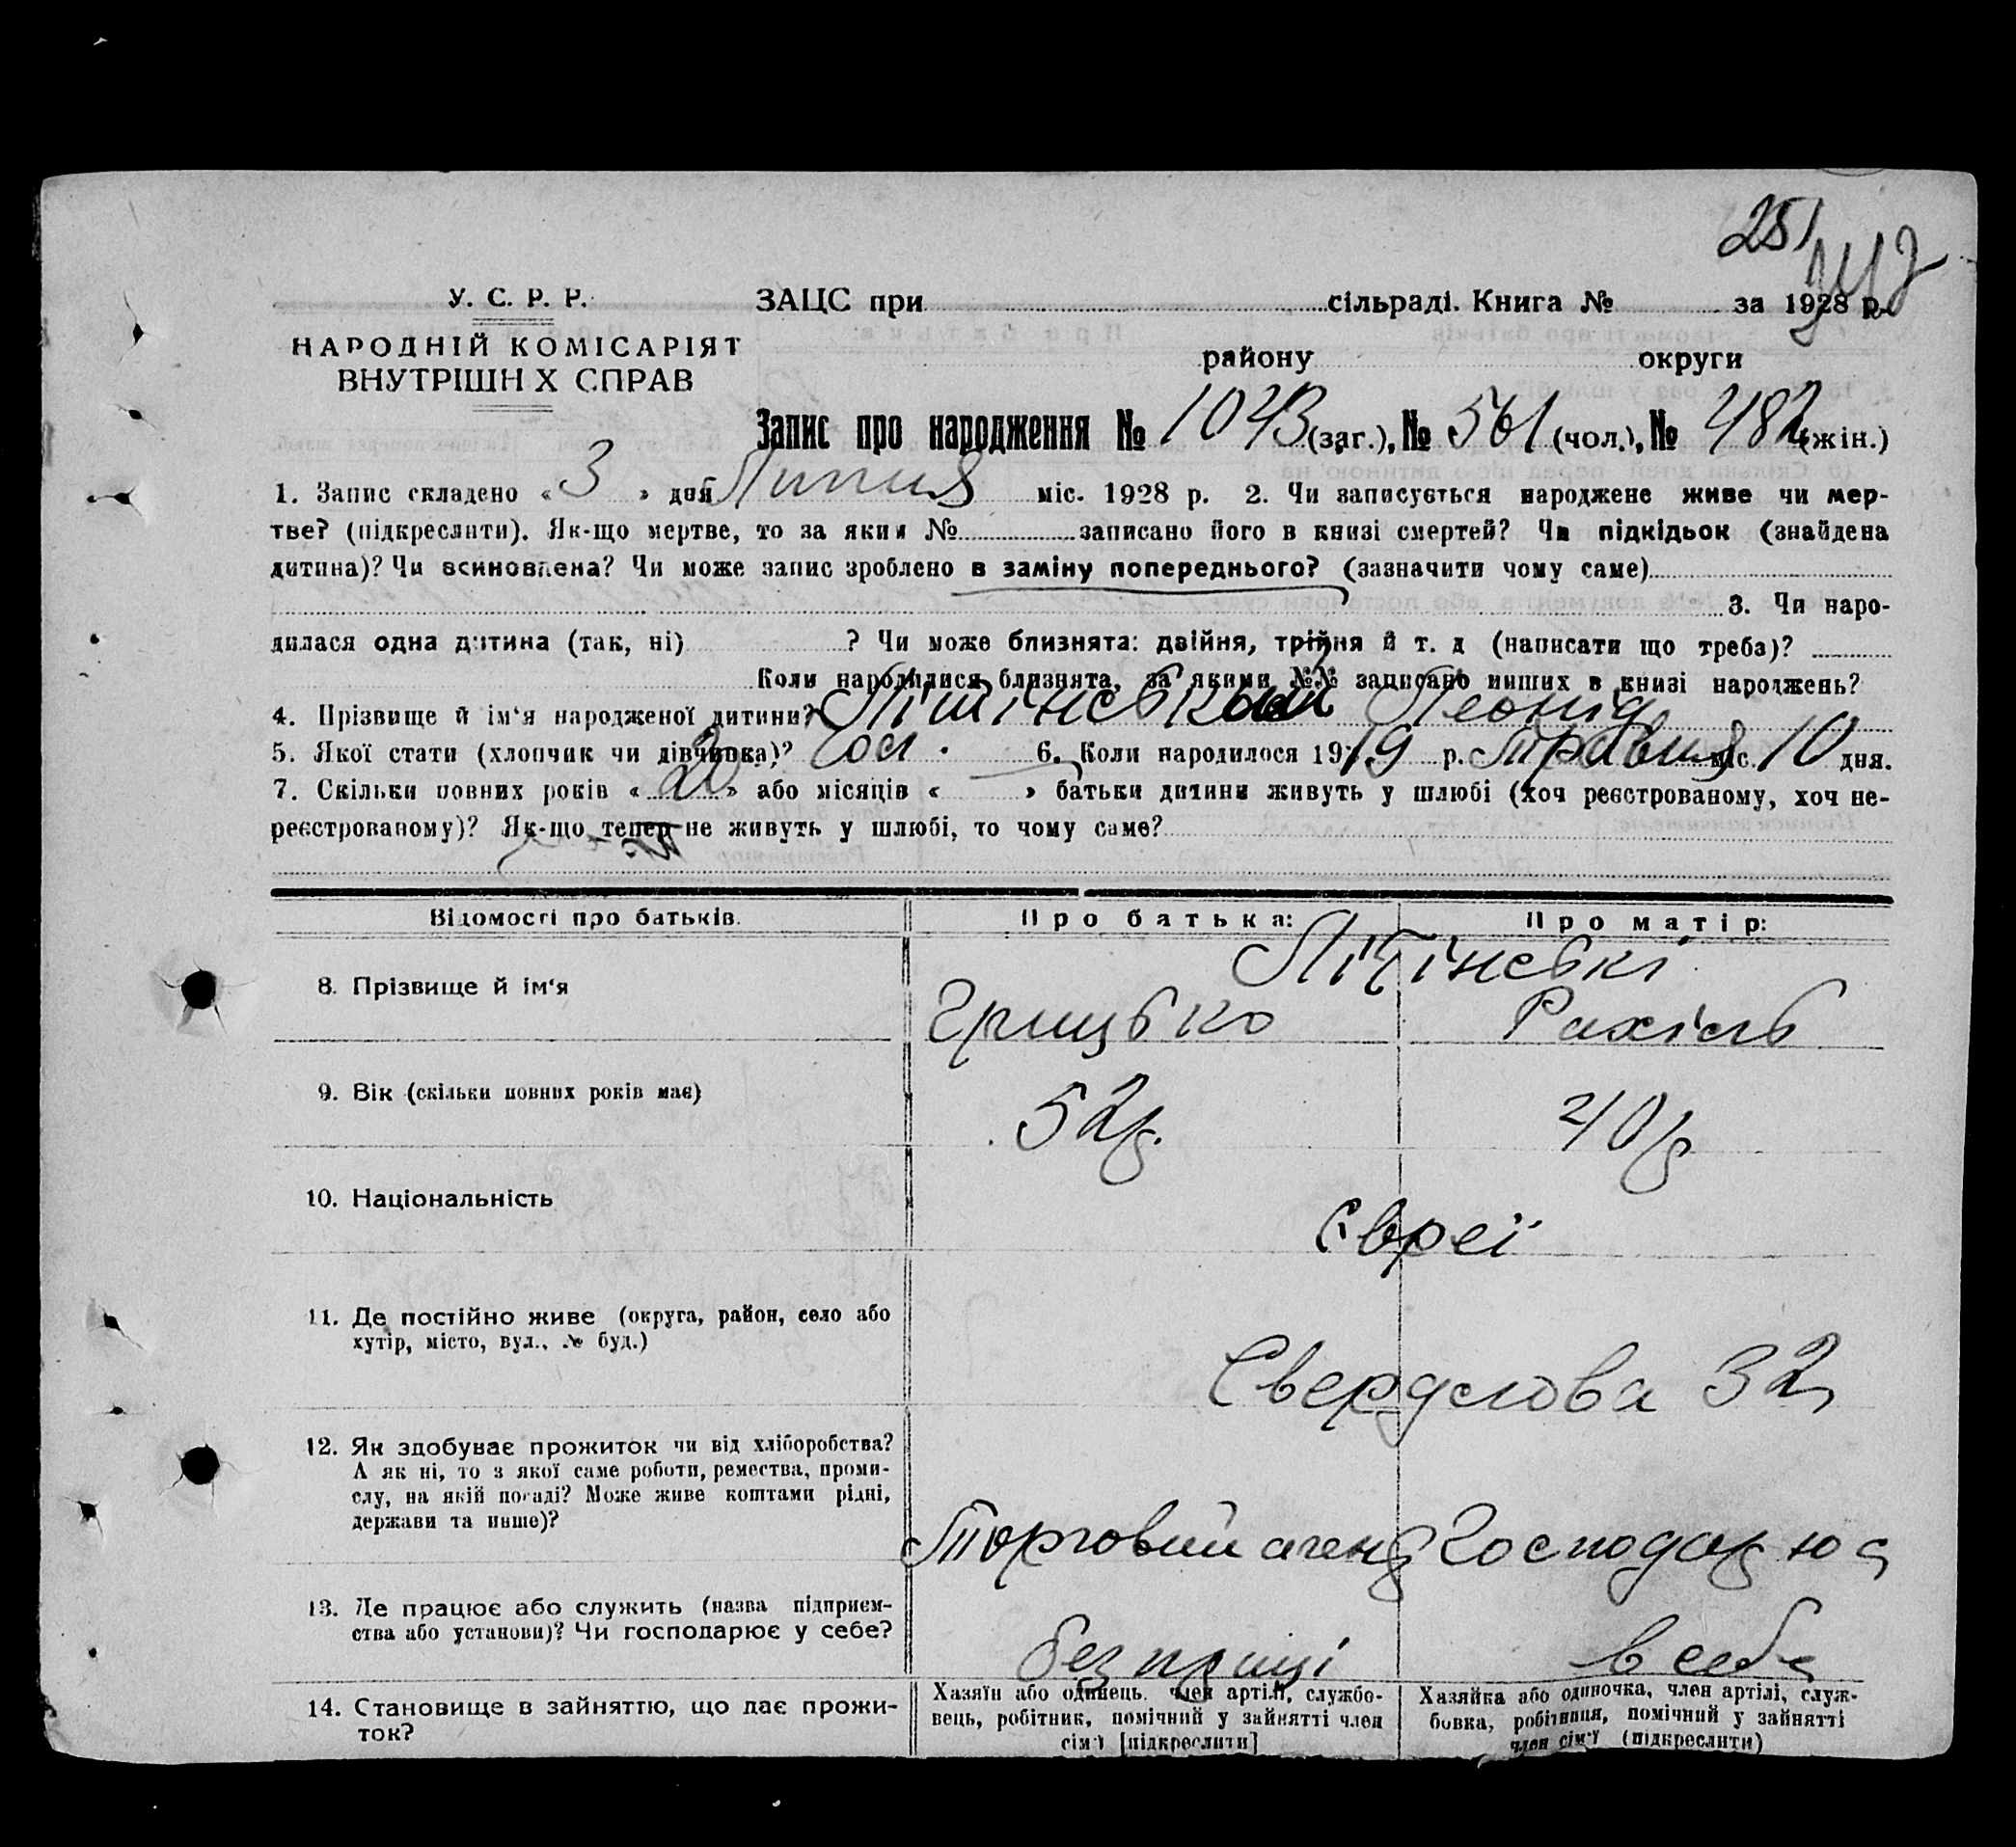 251
У. С. Р. Р.
ЗАЦС при сільраді. Книга № за 1928 р.
НАРОДНІЙ КОМІСАРІЯТ
ВНУТРІШН Х СПРАВ
району округи
Запис про народження № 1043 (заг.), № 561 (чол.), № 482 (жін.)
1. Запис складено « 3 » дня Липня міс. 1928 р. 2. Чи записується народжене живе чи мер-
тве? (підкреслити). Як-що мертве, то за яким № записано його в книзі смертей? Чи підкідьок (знайдена
дитина)? Чи всиновлена? Чи може запис зроблено в заміну попереднього? (зазначити чому саме)
3. Чи наро-
дилася одна дитина (так, ні) ? Чи може близнята: двійня, трійня й т. д (написати що треба)?
Коли народилися близнята, за якими №№ записано инших в книзі народжень?
4. Прізвище й ім'я народженої дитини? Літінський Леонід
5. Якої стати (хлопчик чи дівчинка)? Чол. 6. Коли народилося 1919 р. Травня міс. 10 дня.
7. Скільки повних років « 20 » або місяців « » батьки дитини живуть у шлюбі (хоч реєстрованому, хоч не-
реєстрованому)? Як-що тепер не живуть у шлюбі, то чому саме?
Відомості про батьків. Про батька: Про матір:
Літінські
8. Прізвище й ім'я Грицько Рахіль
9. Вік (скільки повних років має) 52 р. 40 р
10. Національність Євреї
11. Де постійно живе (округа, район, село або
хутір, місто, вул., № буд.)
Свердлова 32
12. Як здобуває прожиток чи від хліборобства?
А як ні, то з якої саме роботи, ремества, проми-
слу, на якій посаді? Може живе коштами рідні,
держави та инше)?
Торговий агент Господарює
13. Де працює або служить (назва підприєм-
ства або установи)? Чи господарює у себе?
без праці в себе
14. Становище в зайняттю, що дає прожи-
ток?
Хазяїн або одинець, член артілі, службо-
вець, робітник, помічний у зайнятті член
сім'ї [підкреслити]
Хазяйка або одиночка, член артілі, служ-
бовка, робітниця, помічний у зайнятті
член сім'ї (підкреслити)